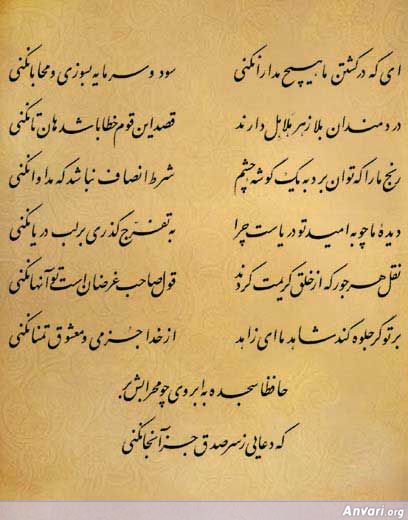 ای که در کشتن ما هیچ مدارا نکنی سود و سرمایه بسوزی و محابا نکنی
دردمندان بلا زهر هلاهل دارند قصد این قوم خطا باشد هان تا نکنی
رنج ما را که توان برد به یک گوشه چشم شرط انصاف نباشد که مداوا نکنی
دیدهٔ ما چو به امید تو دریاست چرا به تفرج گذری بر لب دریا نکنی
نقل هر جور که از خلق کریمت کردند قول صاحب غرضان است تو آنها نکنی
بر تو گر جلوه کند شاهد ما ای زاهد از خدا جز می و معشوق تمنا نکنی
حافظا سجده به ابروی چو محرابش بر
که دعایی ز سر صدق جز آنجا نکنی
Anvari.org